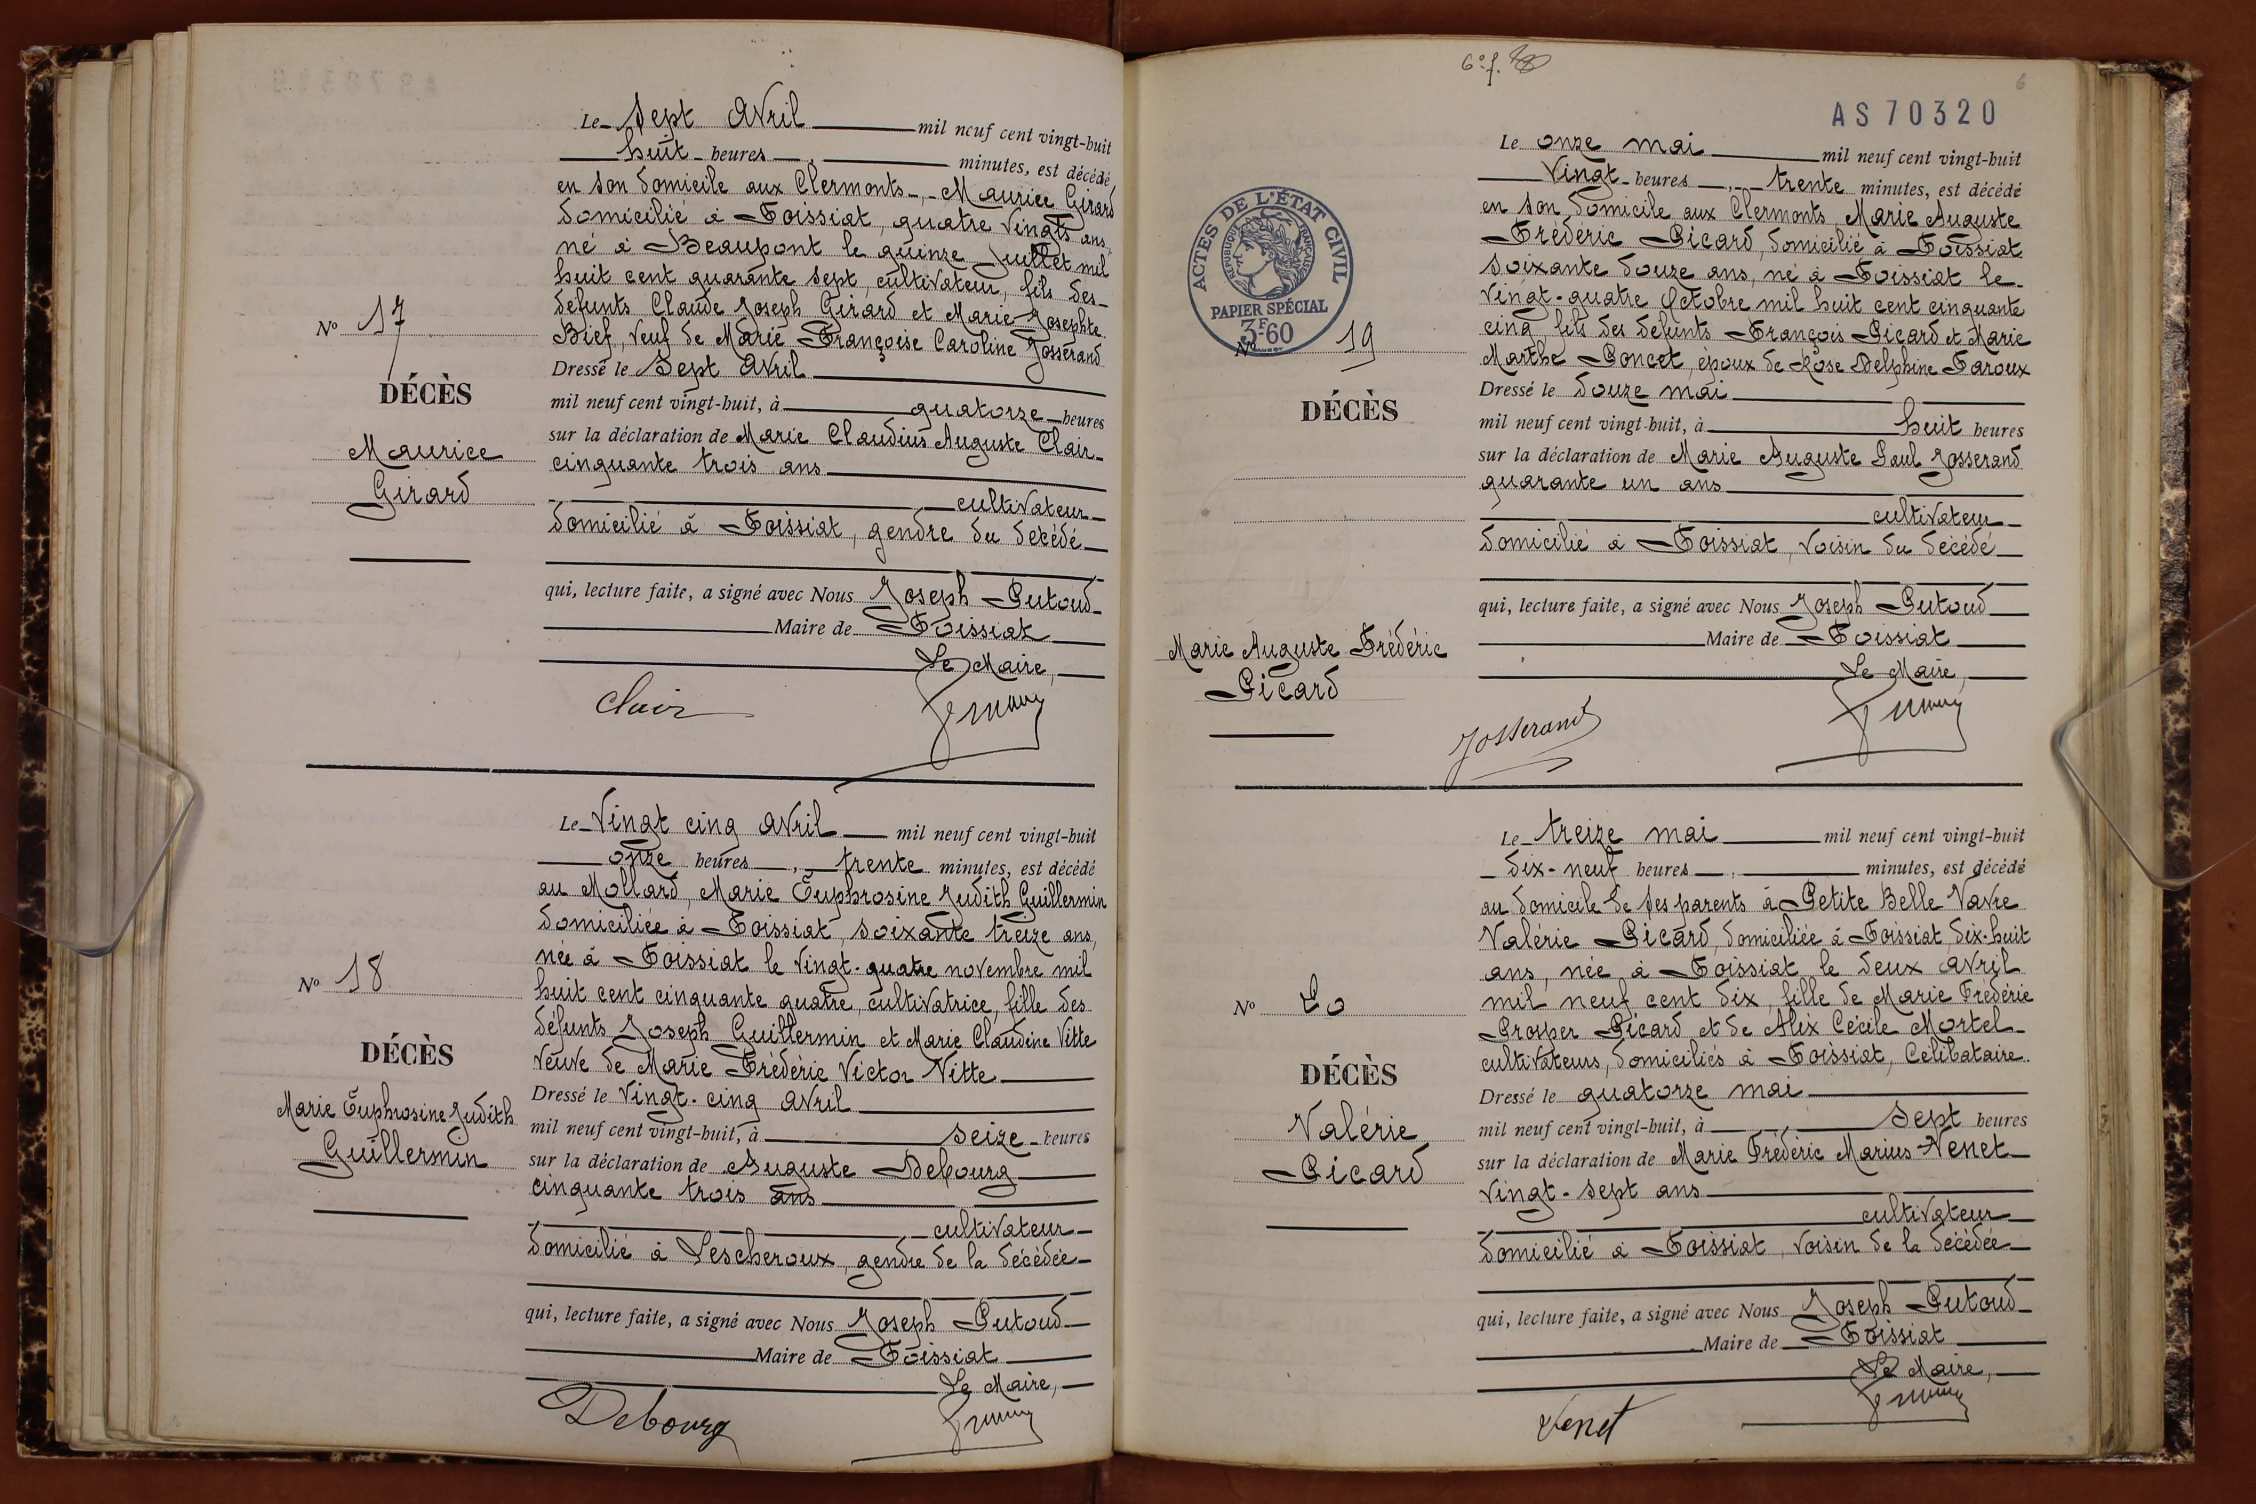 Le Sept Avril mil neuf cent vingt-huit
huit heures, minutes, est décédé
en son domicile aux Clermonts, Maurice Girard
domicilié à Foissiat, quatre vingts ans,
né à Beaupont le quinze Juillet mil
huit cent quarante sept, cultivateur, fils des
défunts Claude Joseph Girard et Marie Josephte
Bief, veuf de Marie Françoise Caroline Josserand
Dressé le Sept Avril
mil neuf cent vingt-huit, à quatorze heures
sur la déclaration de Marie Claudius Auguste Clair
cinquante trois ans
cultivateur
domicilié à Foissiat, gendre du décédé
qui, lecture faite, a signé avec Nous Joseph Putoud
Maire de Foissiat
Le Maire,
Clair
No 17
DÉCÈS
Maurice
Girard
Le Vingt cinq Avril mil neuf cent vingt-huit
onze heures, trente minutes, est décédé
au Mollard, Marie Euphrosine Judith Guillermin
domiciliée à Foissiat, soixante treize ans,
née à Foissiat le vingt-quatre novembre mil
huit cent cinquante quatre, cultivatrice, fille des
défunts Joseph Guillermin et Marie Claudine Vitte
veuve de Marie Frédéric Victor Nitte
Dressé le Vingt-cinq Avril
mil neuf cent vingt-huit, à seize heures
sur la déclaration de Auguste Debourg
cinquante trois ans
cultivateur
domicilié à Lescheroux, gendre de la décédée
qui, lecture faite, a signé avec Nous Joseph Putoud
Maire de Foissiat
Le Maire,
Debourg
No 18
DÉCÈS
Marie Euphrosine Judith
Guillermin
6e f.
6
AS 70320
ACTES DE L'ÉTAT CIVIL
RÉPUBLIQUE FRANÇAISE
PAPIER SPÉCIAL
3F60
Le onze mai mil neuf cent vingt-huit
Vingt heures, trente minutes, est décédé
en son domicile aux Clermonts Marie Auguste
Frédéric Picard, domicilié à Foissiat
soixante douze ans, né à Foissiat le
vingt-quatre Octobre mil huit cent cinquante
cinq fils des défunts François Picard et Marie
Marthe Poncet, époux de Rose Delphine Faroux
Dressé le douze mai
mil neuf cent vingt-huit, à huit heures
sur la déclaration de Marie Auguste Paul Josserand
quarante un ans
cultivateur
domicilié à Foissiat, voisin du décédé
qui, lecture faite, a signé avec Nous Joseph Putoud
Maire de Foissiat
Le Maire,
Josserand
No 19
DÉCÈS
Marie Auguste Frédéric
Picard
Le treize mai mil neuf cent vingt-huit
dix-neuf heures, minutes, est décédé
au domicile de ses parents à Petite Belle Vavre
Valérie Picard, domiciliée à Foissiat, dix-huit
ans, née à Foissiat le deux avril
mil neuf cent dix, fille de Marie Frédéric
Prosper Picard et de Alix Cécile Mortel
cultivateurs, domiciliés à Foissiat, Célibataire.
Dressé le quatorze mai
mil neuf cent vingt-huit, à Sept heures
sur la déclaration de Marie Frédéric Marius Venet
vingt-sept ans
cultivateur
domicilié à Foissiat, voisin de la décédée
qui, lecture faite, a signé avec Nous Joseph Putoud
Maire de Foissiat
Le Maire,
Venet
No 20
DÉCÈS
Valérie
Picard